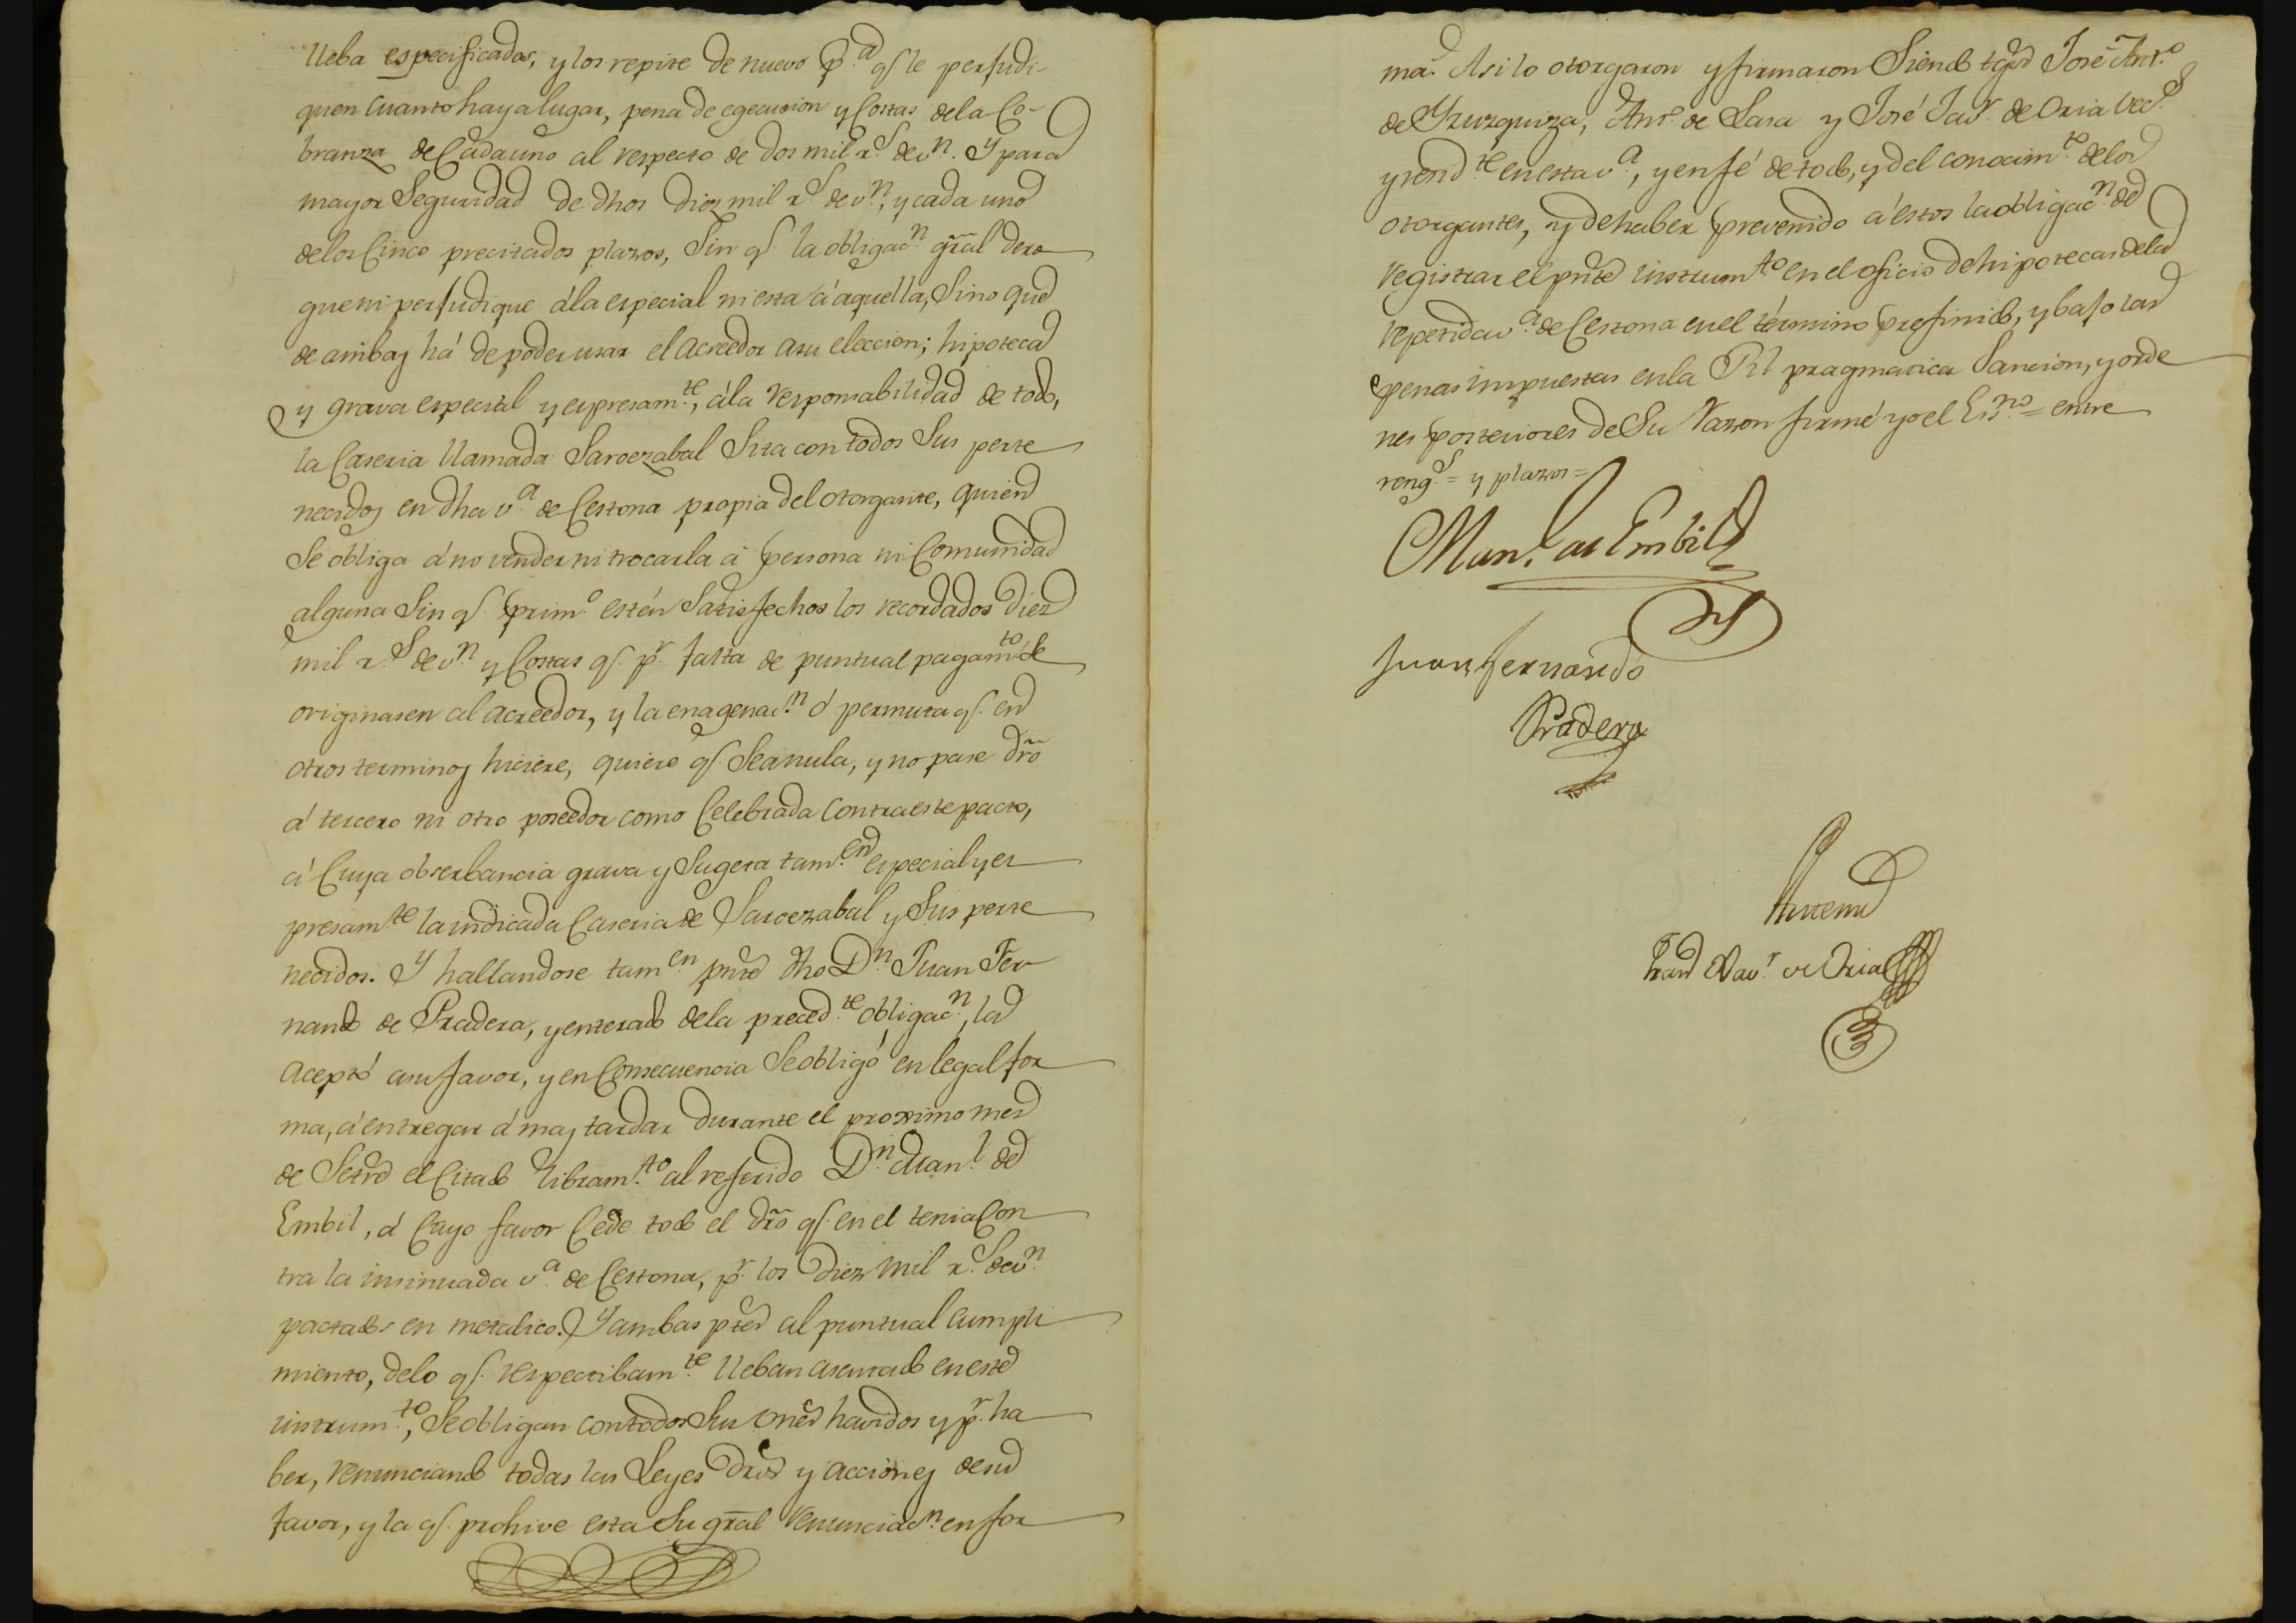 lleba especificadas, y los repite de nuevo p.ª q.e le perjudi-
quen cuanto haya lugar, pena de egecucion y Costas de la Co-
branza de Cada uno al respecto de dos mil r.s de v.n. Y para
mayor Seguridad de dhos diez mil r.s de v.n, y cada uno
de los Cinco precitados plazos, Sin q.e la obligac.n gral dero
gue ni perjudique á la especial ni esta á aquella, Sino que
de ambas há de poder usar el Acreedor a su eleccion; hipoteca
y grava especial y expresam.te, á la responsabilidad de todo,
la Caseria llamada Saroezabal Sita con todos Sus perte
necidos en dha v.ª de Cestona propia del otorgante, quien
Se obliga á no vender ni trocarla á persona ni Comunidad
alguna Sin q.e prim.o estén Satisfechos los recordados diez
mil r.s de v.n y Costas q.e p.r falta de puntual pagam.to se
originasen al Acreedor, y la enagenac.n ó permuta q.e en
otros terminos hiciere, quiere q.e Sea nula, y no pase dro
á tercero ni otro poseedor como Celebrada contra este pacto,
á Cuya obserbancia grava y Sugeta tam.en especial y ex
presam.te la indicada Caseria de Saroezabal y Sus perte
necidos. Y hallandose tam.en pnte dho D.n Juan Fer
nando de Pradera, y enterado de la preced.te obligac.n, la
aceptó a su favor, y en Consecuencia Se obligó en legal for
ma, á entregar á mas tardar durante el proximo mes
de Setre el Citado libram.to al referido D.n Man.l de
Embil, á Cuyo favor Cede todo el dro q.e en el tenia Con
tra la insinuada v.ª de Cestona, p.r los diez mil r.s de v.n
pactados en metalico. Y ambas ptes al puntual Cumpli
miento, de lo q.e respectibam.te lleban asentado en este
instrum.to, Se obligan con todos Sus vnes havidos y p.r ha
ber, renunciando todas las Leyes dros y acciones de su
favor, y la q.e prohive esta Su gral renunciac.n en for
ma. Asi lo otorgaron y firmaron Siendo tgos José Ant.o
de Yrurzquiza, Ant.o de Lasa y José Jav.r de Oria vec.s
y resid.te en esta v.ª, y en fé de todo, y del conocim.to de los
otorgantes, y de haber prevenido á estos la obligac.n de
registrar el pnte instrum.to en el oficio de hipotecas de la
repetida v.ª de Cestona en el término prefinido, y bajo las
penas impuestas en la Rl pragmatica Sancion, y orde
nes posteriores de Su razon firmé yo el Es.no = entre
reng.s = y plazos =
Man.l de Embil
Juan Fernando
Pradera
Antemi
Xav.r de Oria